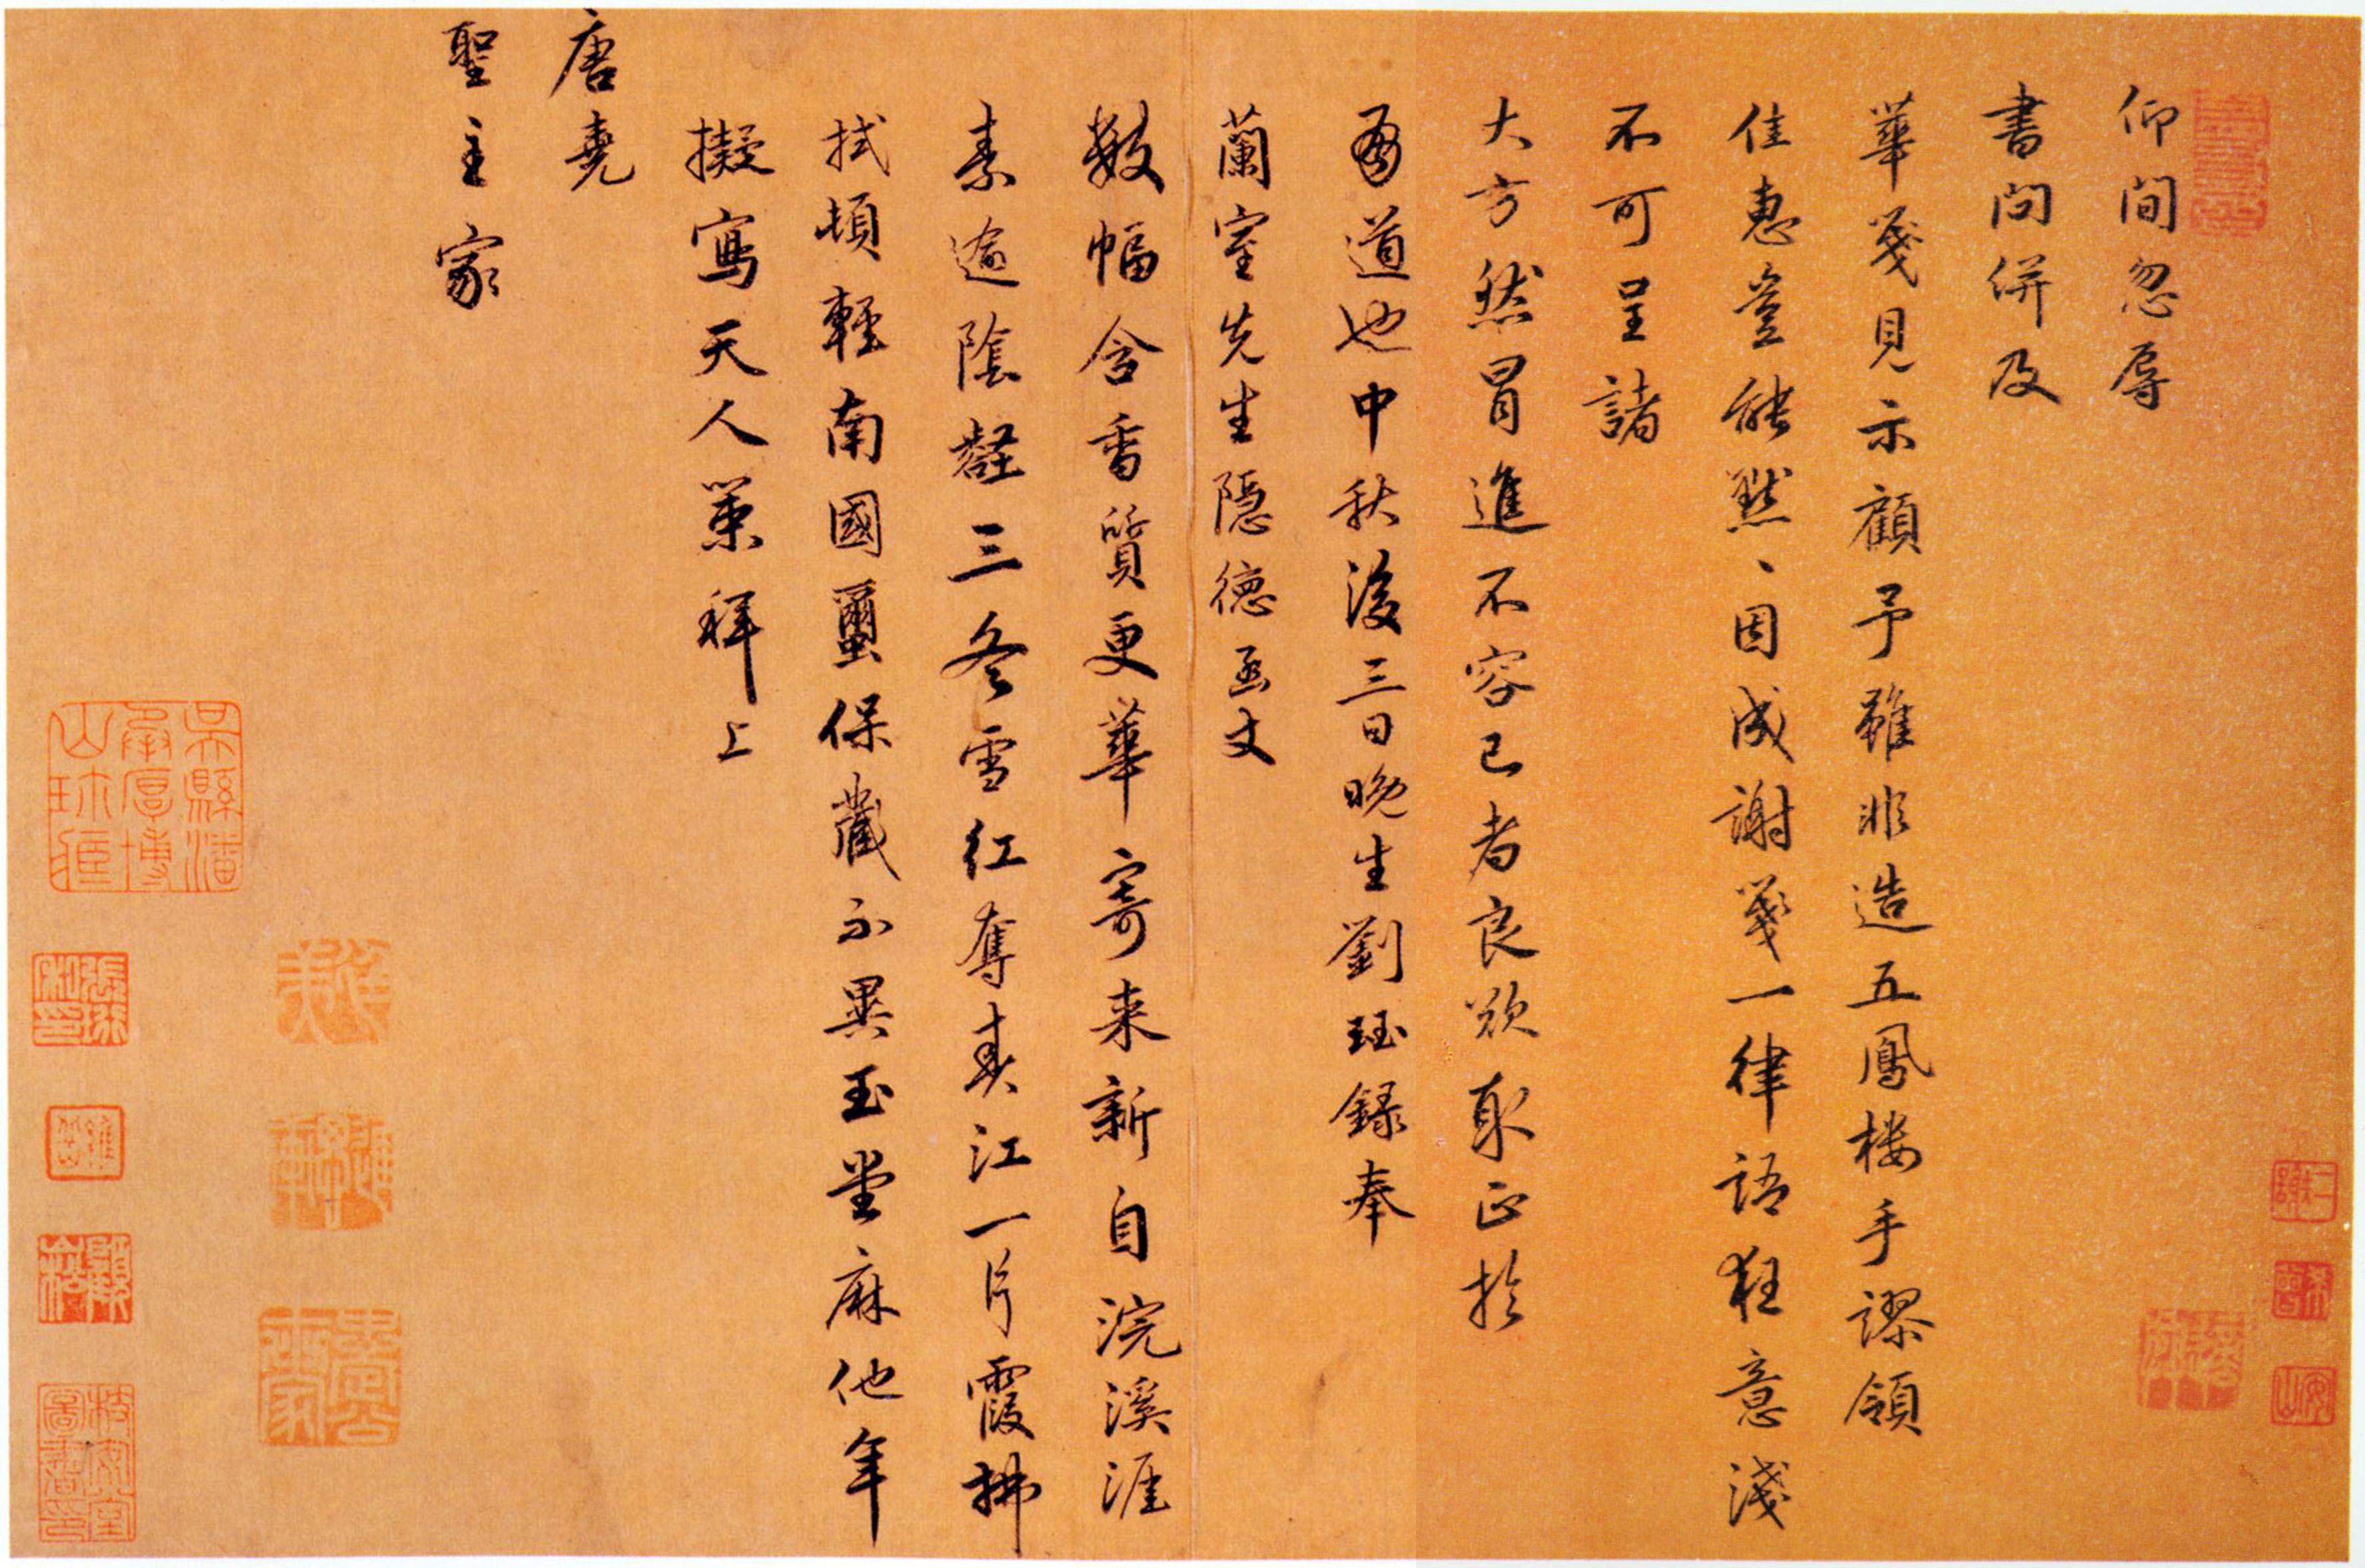 仰間忽辱
書問併及
華箋見示顧予雖非造五鳳樓手謬領
佳惠豈能默、因成謝箋一律語狂意淺
不可呈諸
大方然冒進不容已者良欲取正於
有道也中秋後三日晚生劉珏錄奉
蘭室先生隱德函丈
數幅含香質更華寄来新自浣溪涯
素逾陰壑三冬雪紅奪春江一片霞拂
拭頓輕南國璽保藏不異玉堂麻他年
擬寫天人策拜上
唐堯
聖主家
吳縣潘承厚博山珍藏
張珩私印